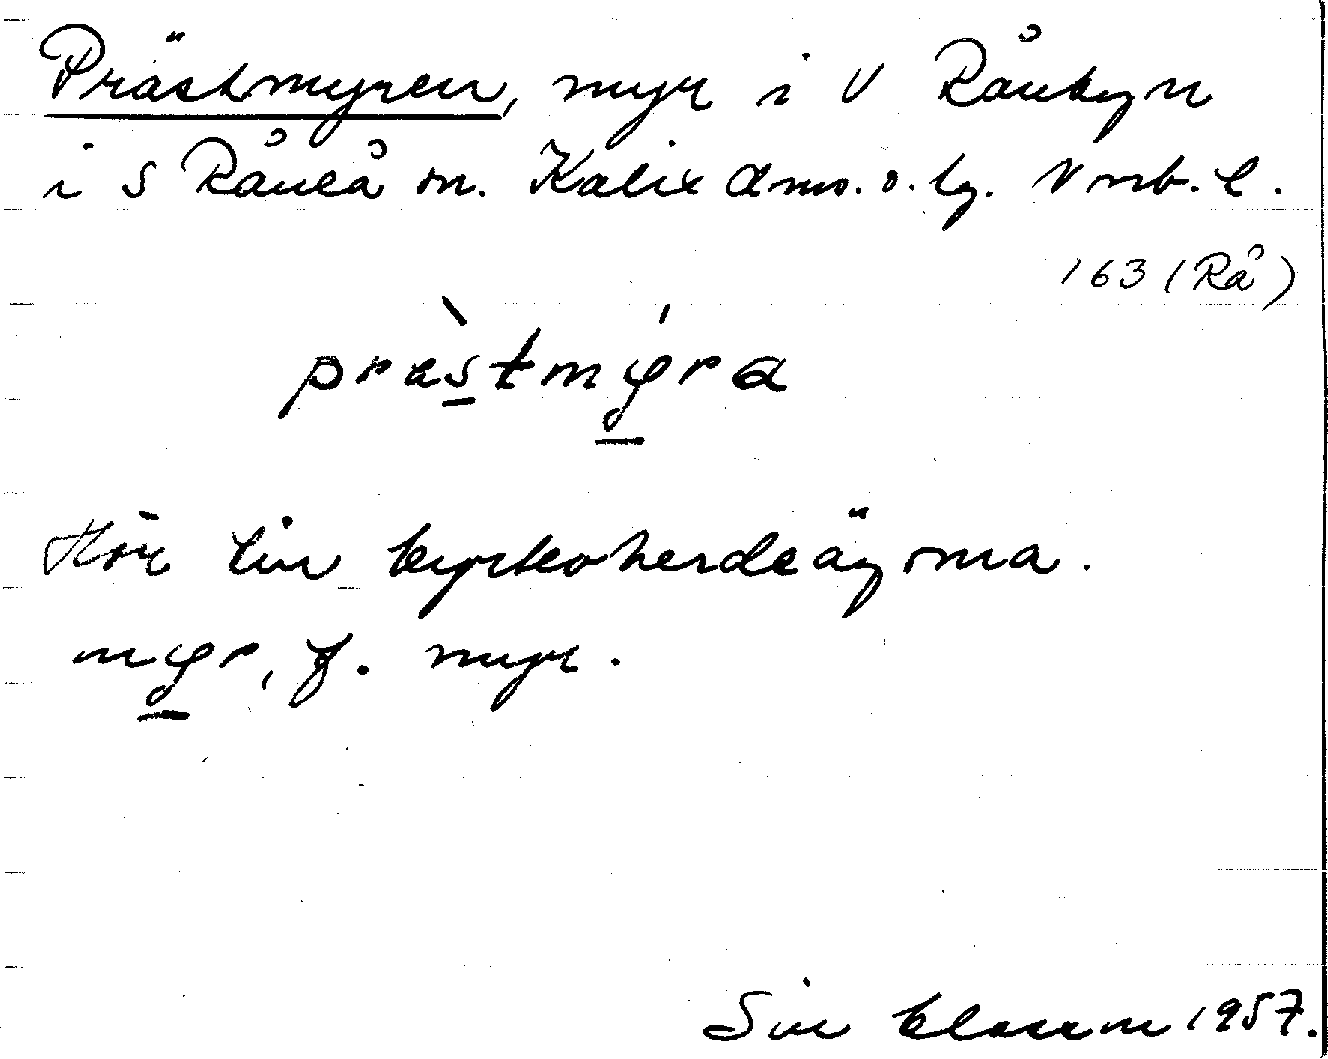 Prästmyren, myr i V Rånbyn
i S Råneå sn. Kalix dms. o. lg. Nnrb. l.
163 (Rå)
præstmyra
Hör till kyrkoherdeägorna.
myr, f. myr.
Siv 1957.